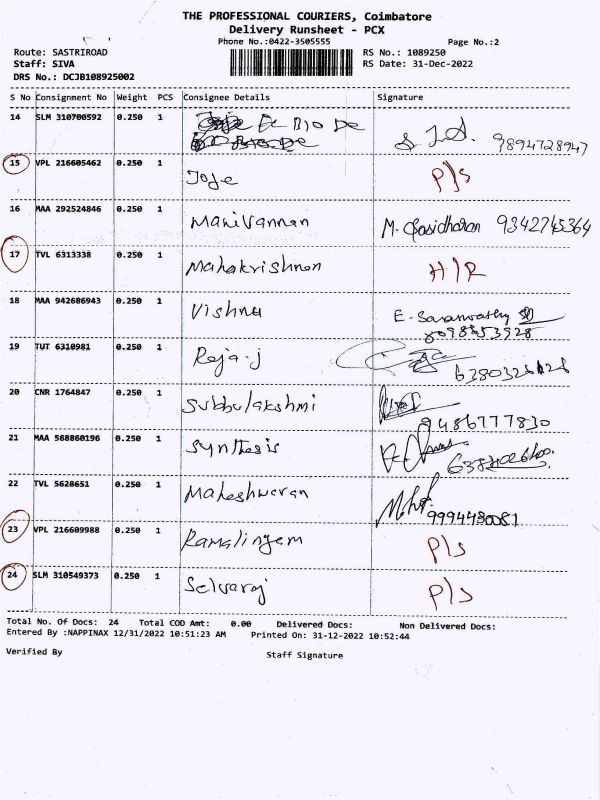 THE PROFESSIONAL COURIERS, Coimbatore
Delivery Runsheet - PCX
Phone No.:0422-3505555 Page No.:2
Route: SASTRIROAD RS No.: 1089250
Staff: SIVA RS Date: 31-Dec-2022
DRS No.: DCJB108925002
S No Consignment No Weight PCS Consignee Details Signature
14 SLM 310700592 0.250 1 9894728947
15 VPL 216605462 0.250 1 Joje P/s
16 MAA 292524846 0.250 1 Manivannan M. Sasidharan 9342745364
17 TVL 6313338 0.250 1 Mahakrishnan H/R
18 MAA 942686943 0.250 1 Vishnu E. Saraswathy
19 TUT 6310981 0.250 1 Raja-j
20 CNR 1764847 0.250 1 Subbulakshmi 9486777830
21 MAA 568860196 0.250 1 Synthesis
22 TVL 5628651 0.250 1 Maheshwaran 9994430081
23 VPL 216609988 0.250 1 Ramalingam P/s
24 SLM 310549373 0.250 1 Selvaraj P/s
Total No. Of Docs: 24 Total COD Amt: 0.00 Delivered Docs: Non Delivered Docs:
Entered By :NAPPINAX 12/31/2022 10:51:23 AM Printed On: 31-12-2022 10:52:44
Verified By Staff Signature